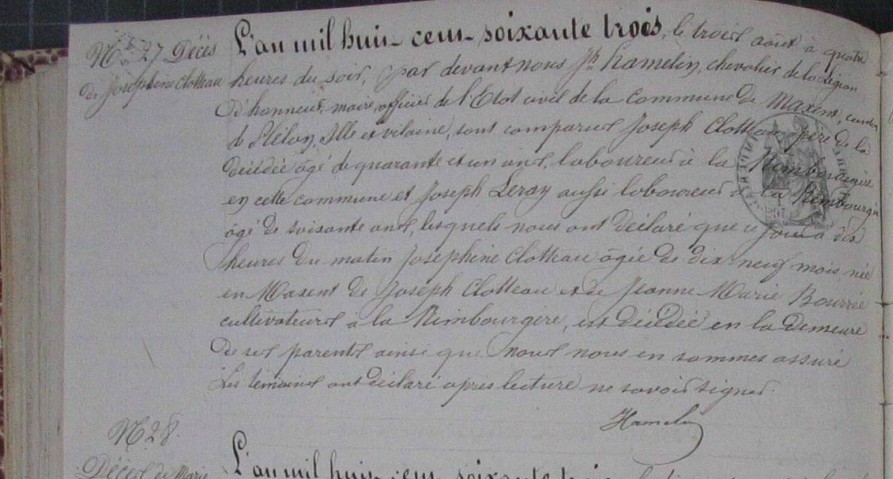 N° 27 Décès
de Josephine Clotteau
L'an mil huit cent soixante trois, le trois août à quatre
heures du soir, par devant nous Jh hamelin, chevalier de la Légion
d'honneur, maire, officier de l'Etat civil de la commune de Maxent, canton
de Plélan, Ille et vilaine, sont comparus Joseph Clotteau père de la
décédée âgé de quarante et un ans, laboureur à la Rimbourgère
en cette commune et Joseph Leray aussi laboureur à la Rimbourgère
âgé de soixante ans, lesquels nous ont déclaré que ce jour à dix
heures du matin Josephine Clotteau âgée de dix neuf mois née
en Maxent de Joseph Clotteau et de Jeanne Marie Bourrée
cultivateurs à la Rimbourgère, est décédée en la demeure
de ses parents ainsi que nous nous en sommes assuré
Les témoins ont déclaré après lecture ne savoir signer.
Hamelin
N° 28.
Décès de Marie
L'an mil huit cent soixante trois